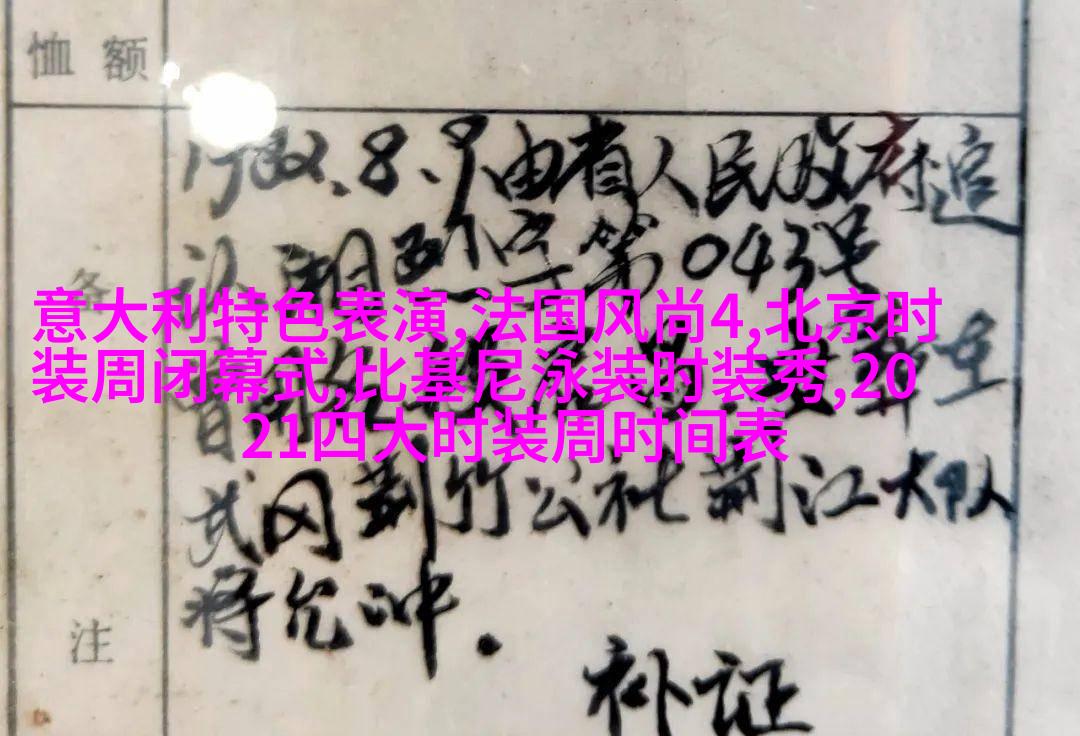 恤额
1982.8.9由省人民政府追
认,湘烈字第043号
备
意大利特色表演,法国风尚4,北京时
装周闭幕式,比基尼泳装时装秀,20
21四大时装周时间表
武冈荆竹公社荆江大队
蒋允冲.
注
补证